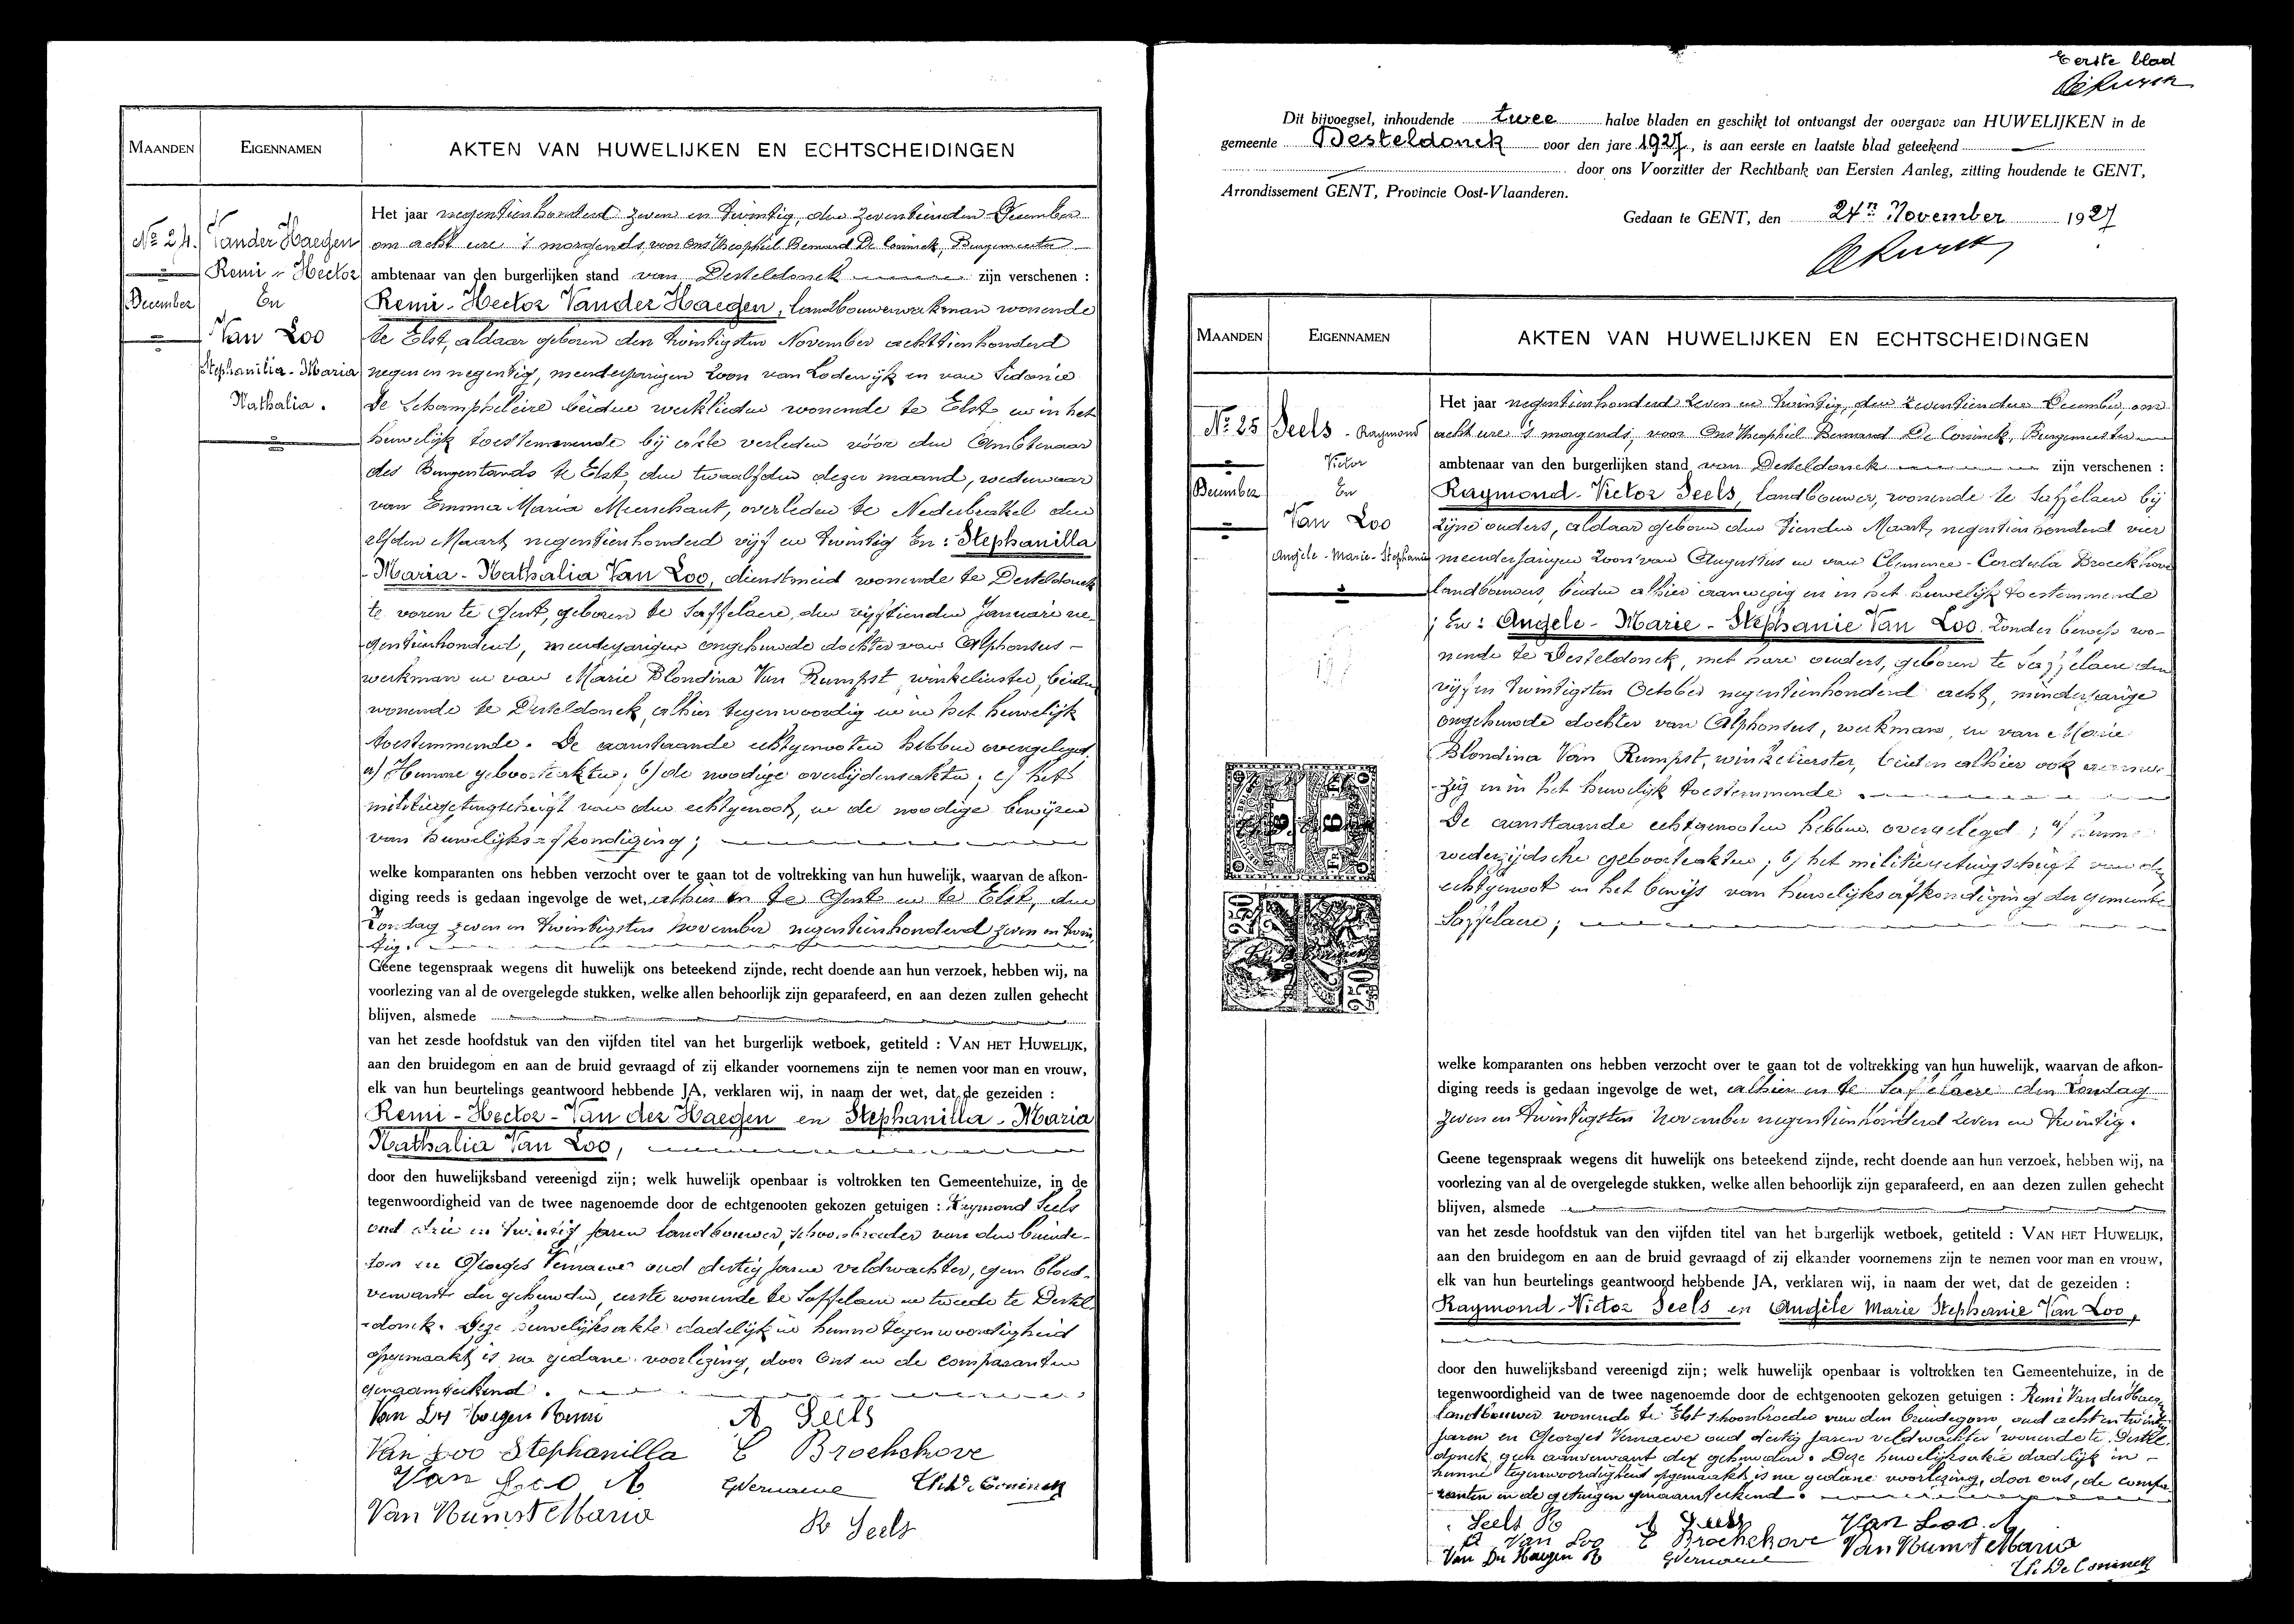 MAANDEN
EIGENNAMEN
AKTEN VAN HUWELIJKEN EN ECHTSCHEIDINGEN
No 24.
December
Vander Haegen
Remi - Hector
En
Van Loo
Stephanilia - Maria
Nathalia.
Het jaar negentienhonderd zeven en twintig, den zeventienden December
om acht ure 's morgends, voor Ons Theophiel Bernard De Coninck, Burgemeester
ambtenaar van den burgerlijken stand van Desteldonck zijn verschenen :
Remi - Hector Vander Haegen, landbouwerwerkman wonende
te Elst, aldaar geboren den twintigsten November achttienhonderd
negen en negentig, meerderjarigen zoon van Lodewijk en van Sidonie
De Schampheleire beiden werklieden wonende te Elst en in het
huwelijk toestemmende bij akte verleden vóór den Ambtenaar
des Burgerstands te Elst, den twaalfden dezer maand, weduwaar
van Emma Maria Meerschaut, overleden te Nederbrakel den
elfden Maart negentienhonderd vijf en twintig En : Stephanilla
- Maria - Nathalia Van Loo, dienstmeid wonende te Desteldonck
te voren te Gent, geboren te Saffelaere, den vijftienden Januari ne-
gentienhonderd, meerderjarige ongehuwde dochter van Alphonsus -
werkman en van Marie Blondina Van Rumpst, winkelierster, beiden
wonende te Desteldonck, alhier tegenwoordig en in het huwelijk
toestemmende. De aanstaande echtgenooten hebben overgelegd,
a) Hunne geboorteakten; b) de noodige overlijdensakten; c) het
militiegetuigschrift van den echtgenoot, en de noodige bewijzen
van huwelijks-afkondiging;
welke komparanten ons hebben verzocht over te gaan tot de voltrekking van hun huwelijk, waarvan de afkon-
diging reeds is gedaan ingevolge de wet, alhier en te Gent en te Elst, den
Zondag zeven en twintigsten November negentienhonderd zeven en twin
tig.
Geene tegenspraak wegens dit huwelijk ons beteekend zijnde, recht doende aan hun verzoek, hebben wij, na
voorlezing van al de overgelegde stukken, welke allen behoorlijk zijn geparafeerd, en aan dezen zullen gehecht
blijven, alsmede
van het zesde hoofdstuk van den vijfden titel van het burgerlijk wetboek, getiteld : VAN HET HUWELIJK,
aan den bruidegom en aan de bruid gevraagd of zij elkander voornemens zijn te nemen voor man en vrouw,
elk van hun beurtelings geantwoord hebbende JA, verklaren wij, in naam der wet, dat de gezeiden :
Remi - Hector - Van der Haegen en Stephanilla - Maria
Nathalia Van Loo,
door den huwelijksband vereenigd zijn; welk huwelijk openbaar is voltrokken ten Gemeentehuize, in de
tegenwoordigheid van de twee nagenoemde door de echtgenooten gekozen getuigen : Raymond Seels
oud drie en twintig jaren landbouwer, schoonbroeder van den bruide-
gom en Georges Vernaeve oud dertig jaren veldwachter, geen bloed-
verwant der gehuwden, eerste wonende te Saffelaere en tweede te Destel
-donck. Deze huwelijksakte dadelijk in hunne tegenwoordigheid
opgemaakt, is na gedane voorlezing, door Ons en de comparanten
genaamteekend.
Van Der Haegen Remi
A Seels
Van Loo Stephanilla
C Brockhove
Van Loo A
GVernaeve
Th De Coninck
Van Rumst Maria
R Seels
Eerste blad
Dit bijvoegsel, inhoudende twee halve bladen en geschikt tot ontvangst der overgave van HUWELIJKEN in de
gemeente Desteldonck voor den jare 1927, is aan eerste en laatste blad geteekend
door ons Voorzitter der Rechtbank van Eersten Aanleg, zitting houdende te GENT,
Arrondissement GENT, Provincie Oost-Vlaanderen.
Gedaan te GENT, den 24n November 1927
MAANDEN
EIGENNAMEN
AKTEN VAN HUWELIJKEN EN ECHTSCHEIDINGEN
No 25
December
Seels - Raymond
Victor
En
Van Loo
Angele - Marie - Stephanie
Het jaar negentienhonderd zeven en twintig, den zeventienden December om
acht ure 's morgends, voor Ons Theophiel Bernard De Coninck, Burgemeester
ambtenaar van den burgerlijken stand van Desteldonck zijn verschenen :
Raymond - Victor Seels, landbouwer, wonende te Saffelaere bij
zijne ouders, aldaar geboren den tienden Maart negentienhonderd vier
meerderjarigen zoon van Augustus en van Clemence - Cordula Broeckhove
landbouwers, beiden alhier aanwezig en in het huwelijk toestemmende
; En : Angele - Marie - Stephanie Van Loo. Zonder beroep wo-
nende te Desteldonck, met hare ouders, geboren te Saffelaere den
vijf en twintigsten October negentienhonderd acht, minderjarige
ongehuwde dochter van Alphonsus, werkman, en van Marie
Blondina Van Rumpst, winkelierster, beiden alhier ook aanwe-
zig en in het huwelijk toestemmende.
De aanstaande echtgenooten hebben overgelegd; a) hunne
wederzijdsche geboorteakten; b) het militiegetuigschrift van den
echtgenoot en het bewijs van huwelijksafkondiging der gemeente
Saffelaere;
welke komparanten ons hebben verzocht over te gaan tot de voltrekking van hun huwelijk, waarvan de afkon-
diging reeds is gedaan ingevolge de wet, alhier en te Saffelaere den Zondag
zeven en twintigsten November negentienhonderd zeven en twintig.
Geene tegenspraak wegens dit huwelijk ons beteekend zijnde, recht doende aan hun verzoek, hebben wij, na
voorlezing van al de overgelegde stukken, welke allen behoorlijk zijn geparafeerd, en aan dezen zullen gehecht
blijven, alsmede
van het zesde hoofdstuk van den vijfden titel van het burgerlijk wetboek, getiteld : VAN HET HUWELIJK,
aan den bruidegom en aan de bruid gevraagd of zij elkander voornemens zijn te nemen voor man en vrouw,
elk van hun beurtelings geantwoord hebbende JA, verklaren wij, in naam der wet, dat de gezeiden :
Raymond - Victor Seels en Angèle Marie Stephanie Van Loo,
door den huwelijksband vereenigd zijn; welk huwelijk openbaar is voltrokken ten Gemeentehuize, in de
tegenwoordigheid van de twee nagenoemde door de echtgenooten gekozen getuigen : Remi Van der Haegen
landbouwer wonende te Elst schoonbroeder van den bruidegom, oud acht en twintig
jaren en Georges Vernaeve oud dertig jaren veldwachter wonende te Destel
donck geen aanverwant der gehuwden. Deze huwelijksakte dadelijk in -
hunne tegenwoordigheid opgemaakt, is na gedane voorlezing, door ons, de compa-
ranten en de getuigen genaamteekend.
Seels R
A Seels
Van Loo. A
A Van Loo
C Brockhove
Van Rumst Maria
Van Der Haegen R
GVernaeve
Th De Coninck